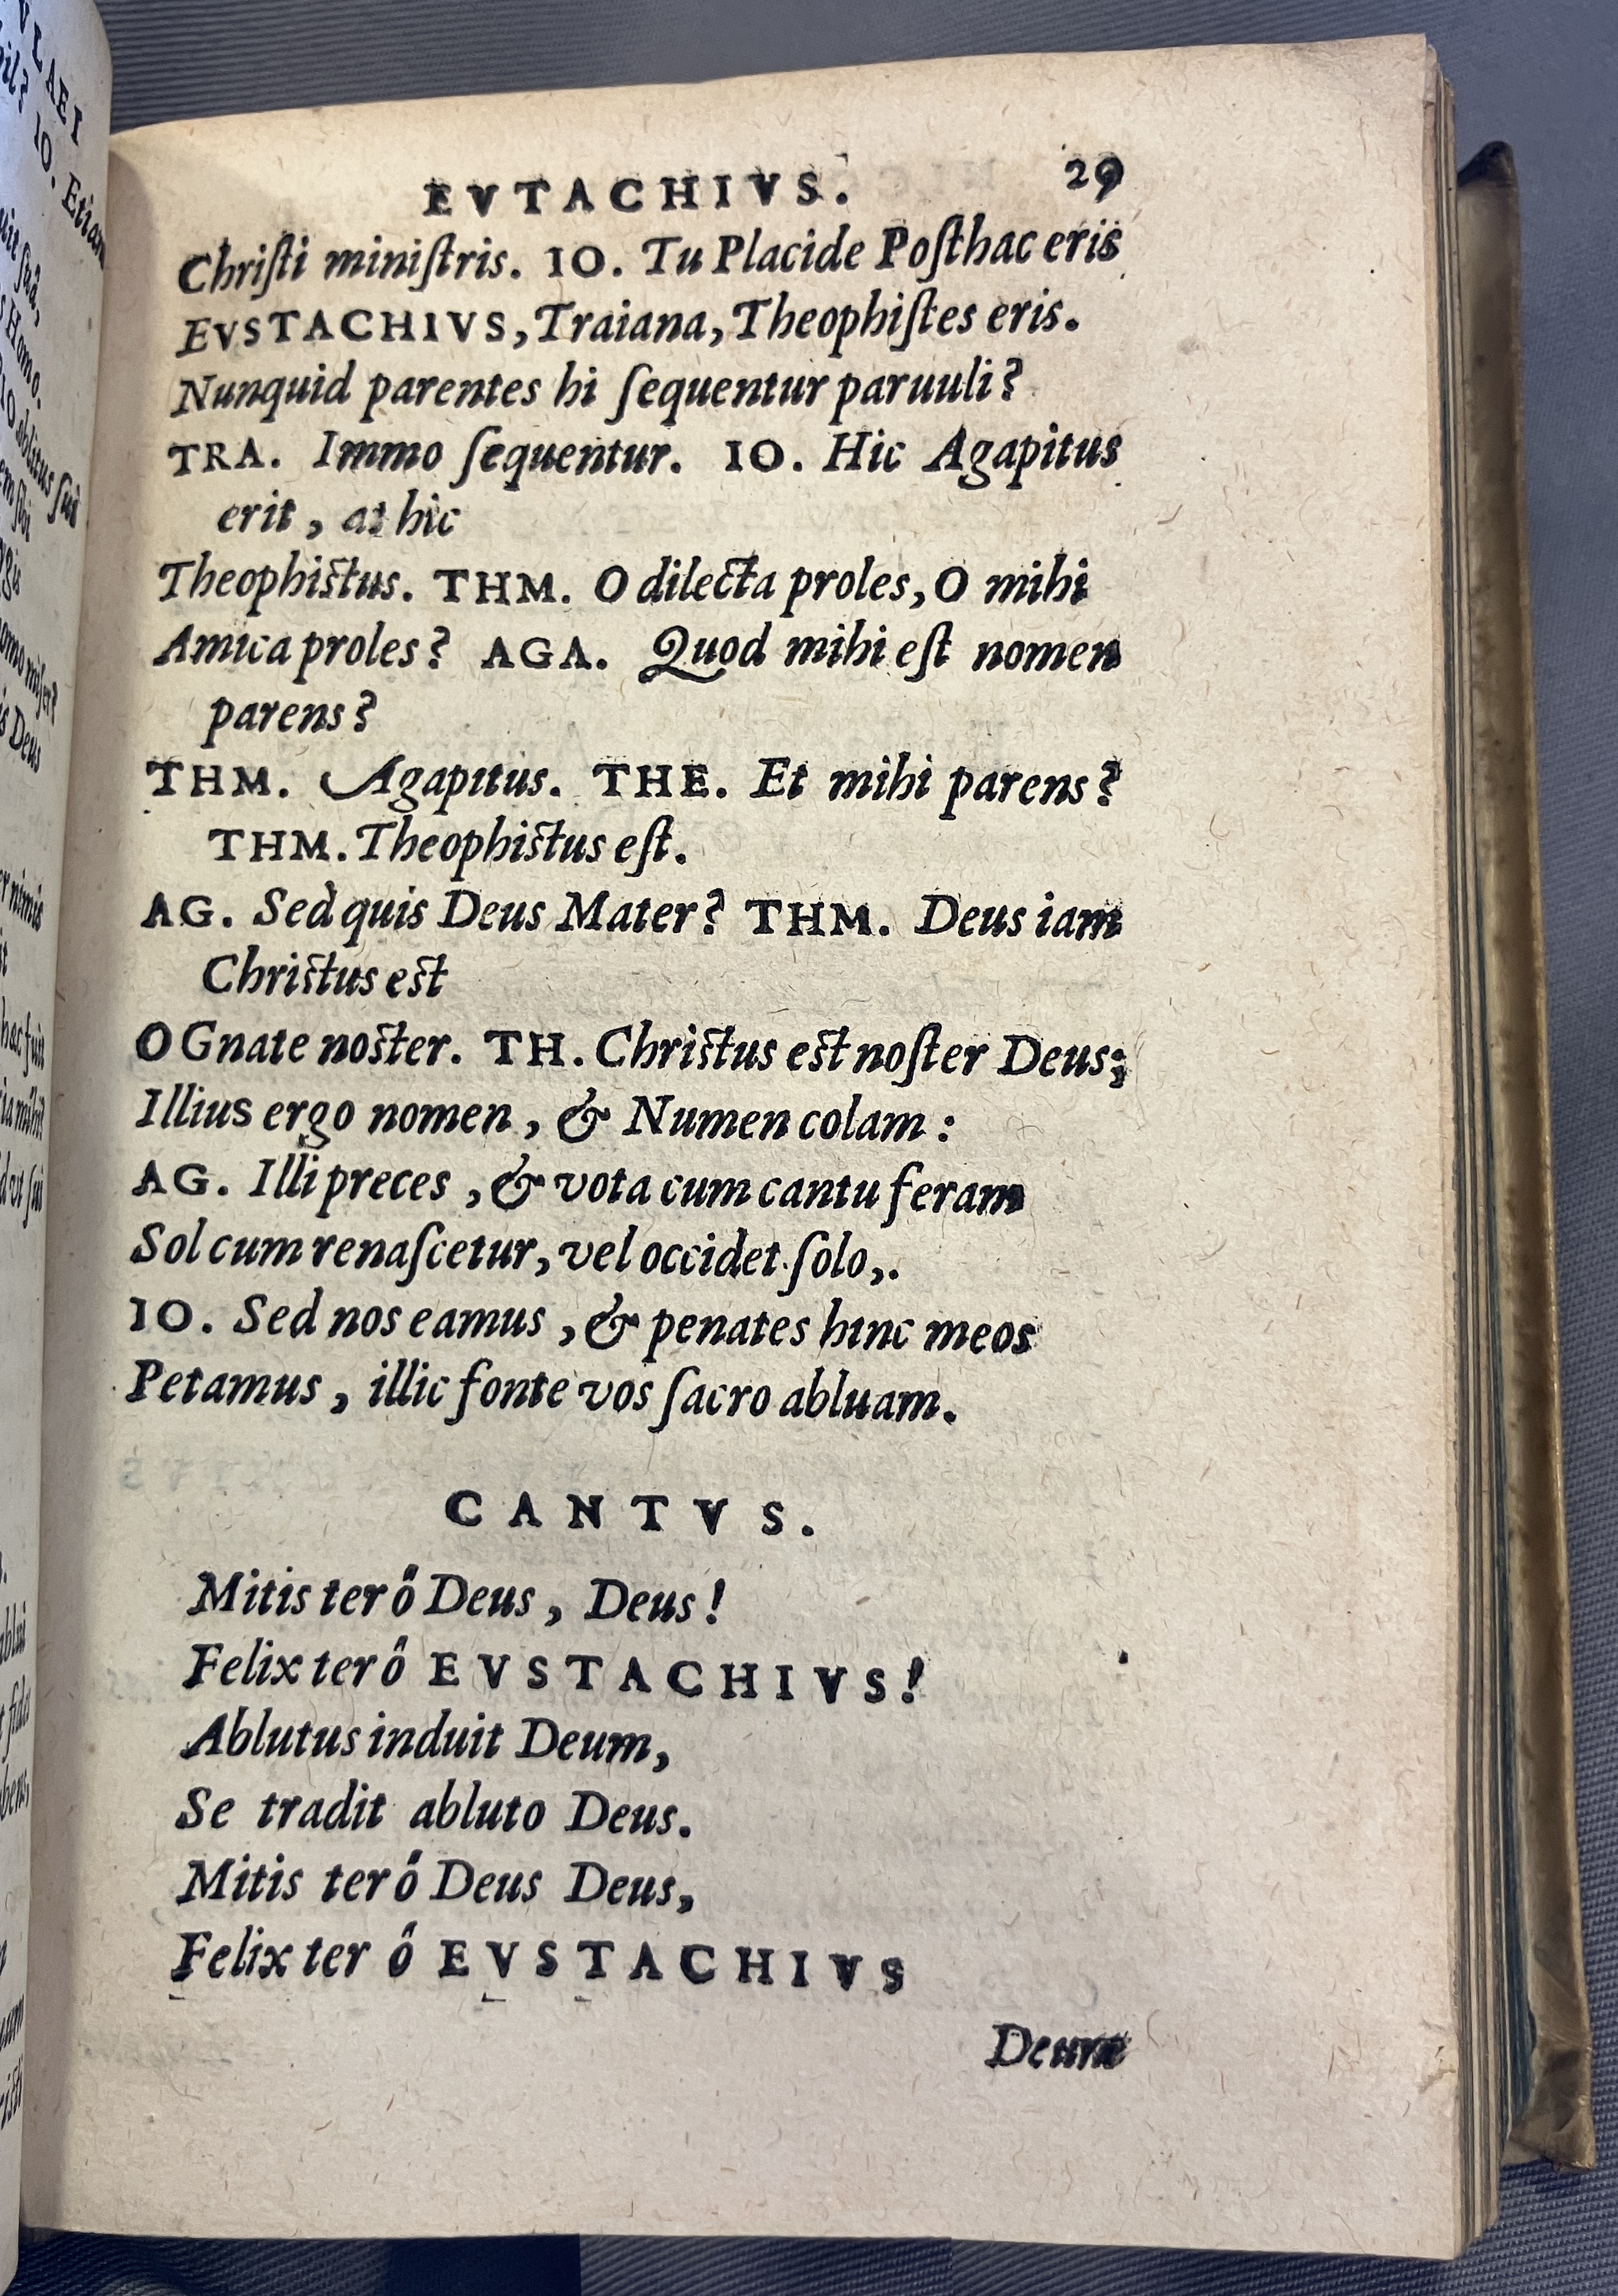 EVTACHIVS. 29
Chriſti miniſtris. IO. Tu Placide Poſthac eris
EVSTACHIVS, Traiana, Theophiſtes eris.
Nunquid parentes hi ſequentur paruuli?
TRA. Immo ſequentur. IO. Hic Agapitus
erit, at hic
Theophiſtus. THM. O dilecta proles, O mihi
Amica proles? AGA. Quod mihi eſt nomen
parens?
THM. Agapitus. THE. Et mihi parens?
THM. Theophiſtus eſt.
AG. Sed quis Deus Mater? THM. Deus iam
Chriſtus eſt
O Gnate noſter. TH. Chriſtus eſt noſter Deus;
Illius ergo nomen, & Numen colam:
AG. Illi preces, & vota cum cantu feram
Sol cum renaſcetur, vel occidet ſolo,.
IO. Sed nos eamus, & penates hinc meos
Petamus, illic fonte vos ſacro abluam.
CANTVS.
Mitis ter ô Deus, Deus!
Felix ter ô EVSTACHIVS!
Ablutus induit Deum,
Se tradit abluto Deus.
Mitis ter ô Deus Deus,
Felix ter ô EVSTACHIVS
VLAEI
IO. Etiam
Homo.
oblitus ſui
Deus
nimis